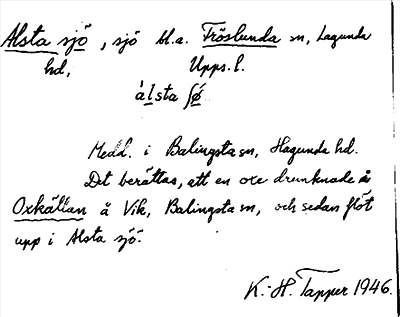 Alsta sjö, sjö bl.a. Fröslunda sn, Lagunda
hd, Upps. l.
àlsta ʃǿ
Medd. i Balingsta sn, Hagunda hd.
Det berättas, att en oxe drunknade i
Oxkällan å Vik, Balingsta sn, och sedan flöt
upp i Alsta sjö.
K.-H. Tapper 1946.